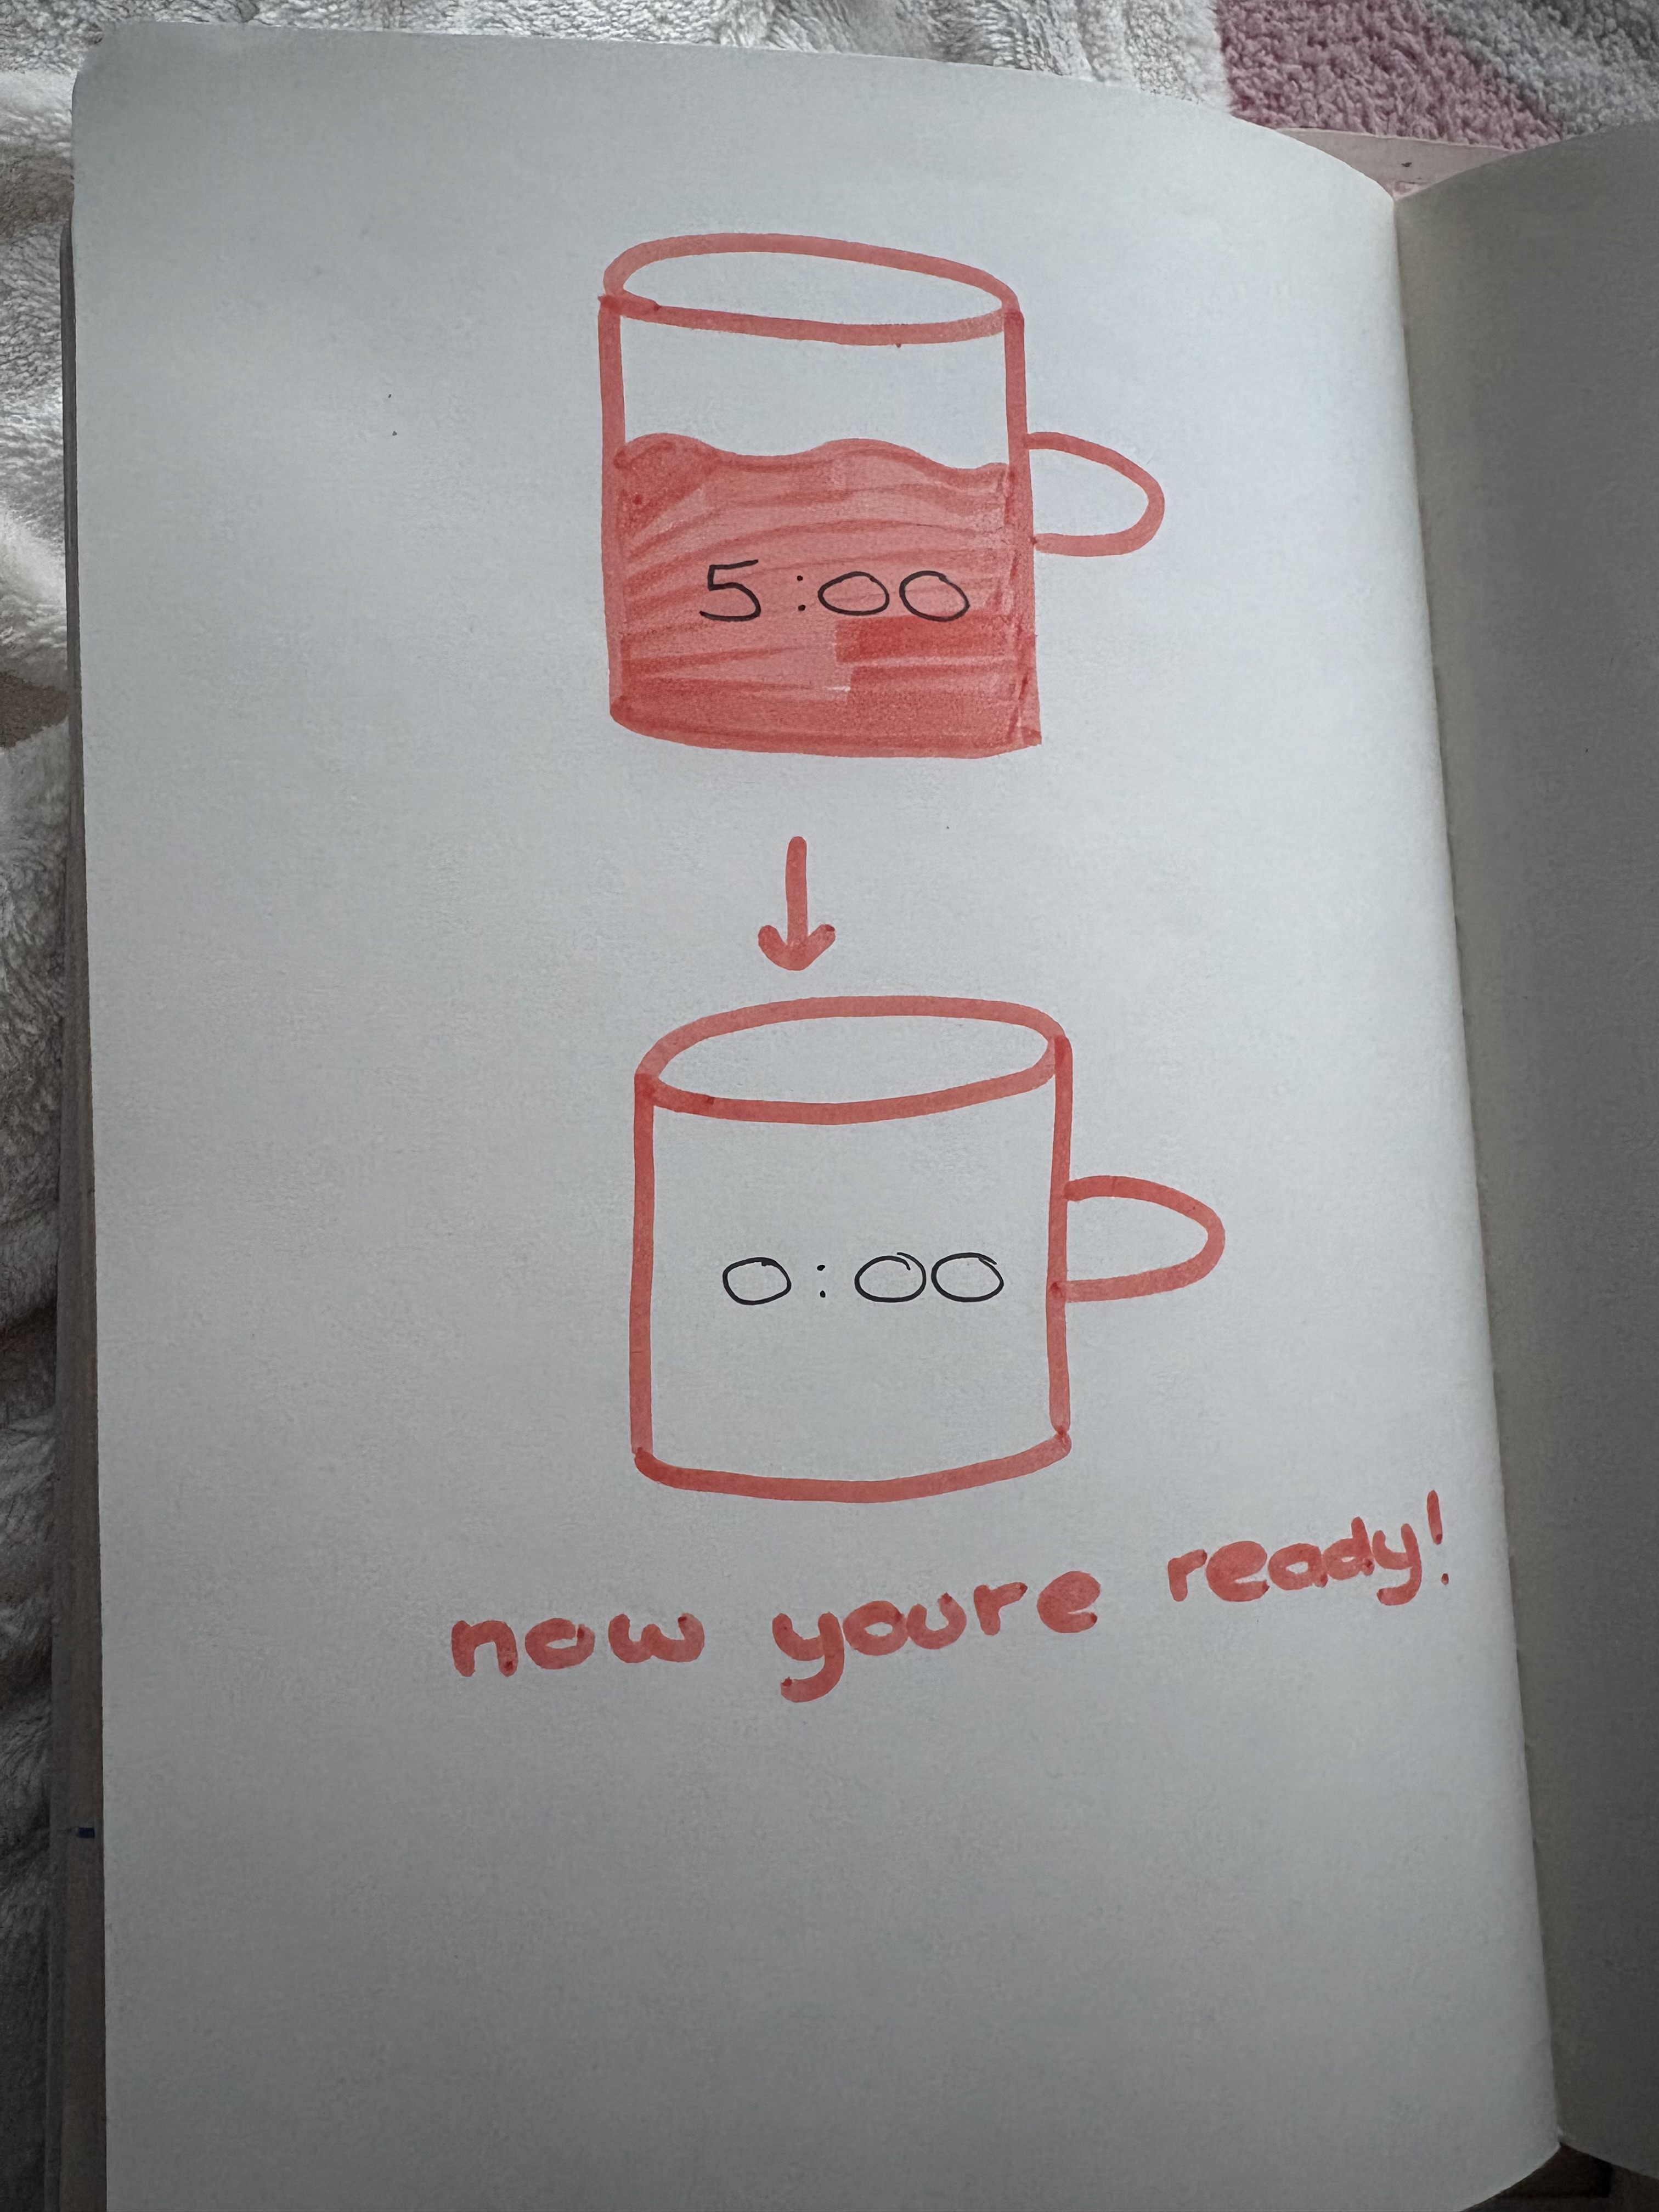 5:00
0:00
now youre ready!